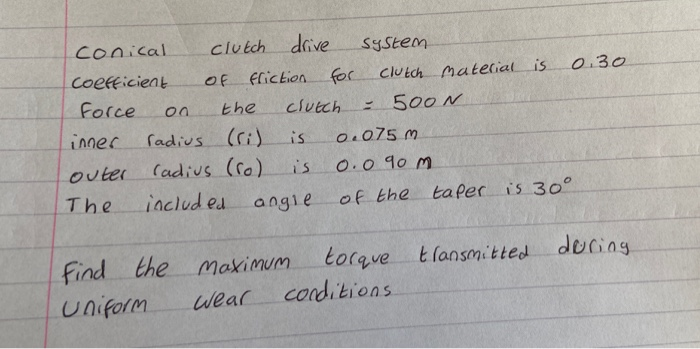 conical clutch drive system
coefficient of friction for clutch material is 0.30
Force on the clutch = 500 N
inner radius (ri) is 0.075 m
outer radius (ro) is 0.090 m
The included angle of the taper is 30°
Find the maximum torque transmitted during
Uniform wear conditions